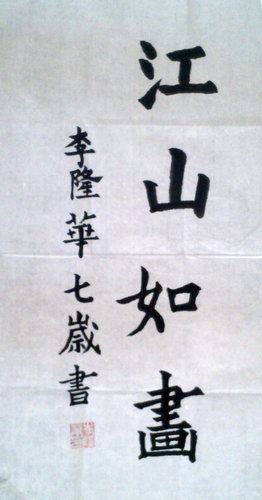 江山如畫
李隆華七歲書